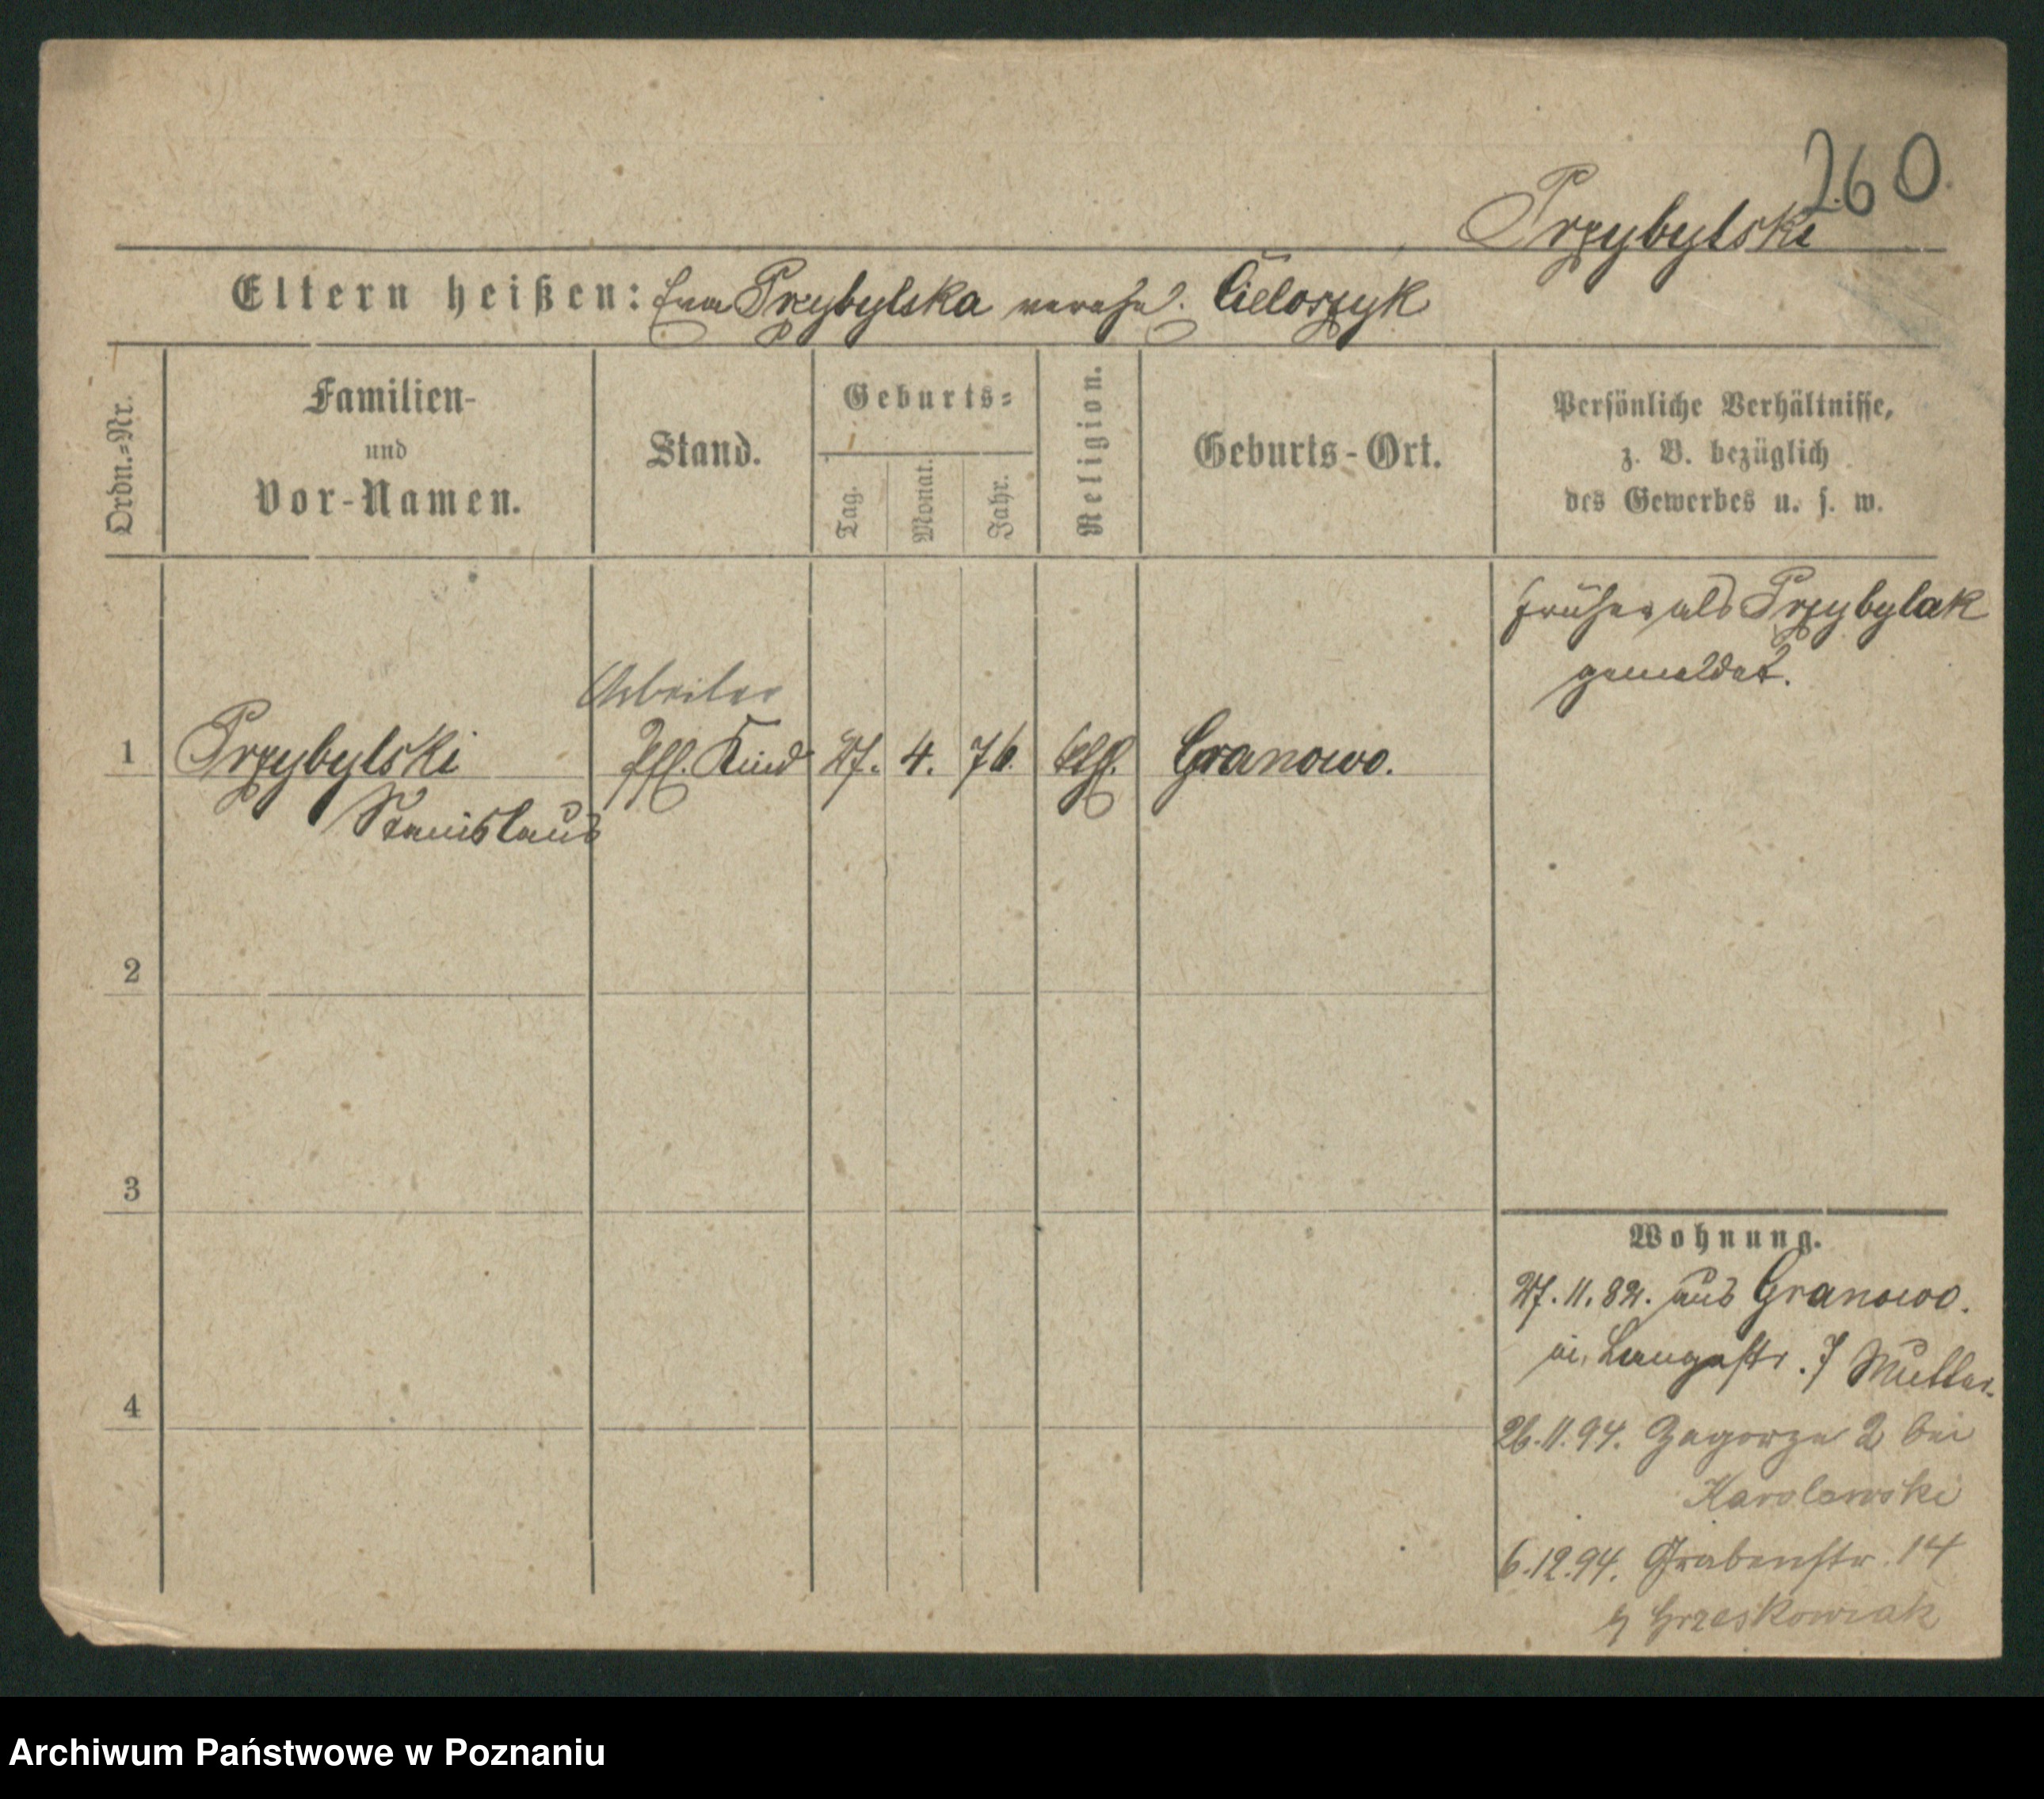 260
Przybylski
Eltern heißen: Eva Przybylska verehl. Cieloszyk
Ordn.-Nr.
Familien-
und
Vor-Namen.
Stand.
Geburts-
Tag.
Monat.
Jahr.
Religion.
Geburts-Ort.
Persönliche Verhältnisse,
z. B. bezüglich
des Gewerbes u. s. w.
früher als Przybylak
gemeldet.
Arbeiter
1 Przybylski Pfl. Kind 27. 4. 76. kth. Granowo.
Stanislaus
2
3
4
Wohnung.
27.11.82. aus Granowo.
Langestr. 7 Mutter.
26.11.94. Zagorze 2 bei
Karolewski
6.12.94. Grabenstr. 14
b Grzeskowiak
Archiwum Państwowe w Poznaniu